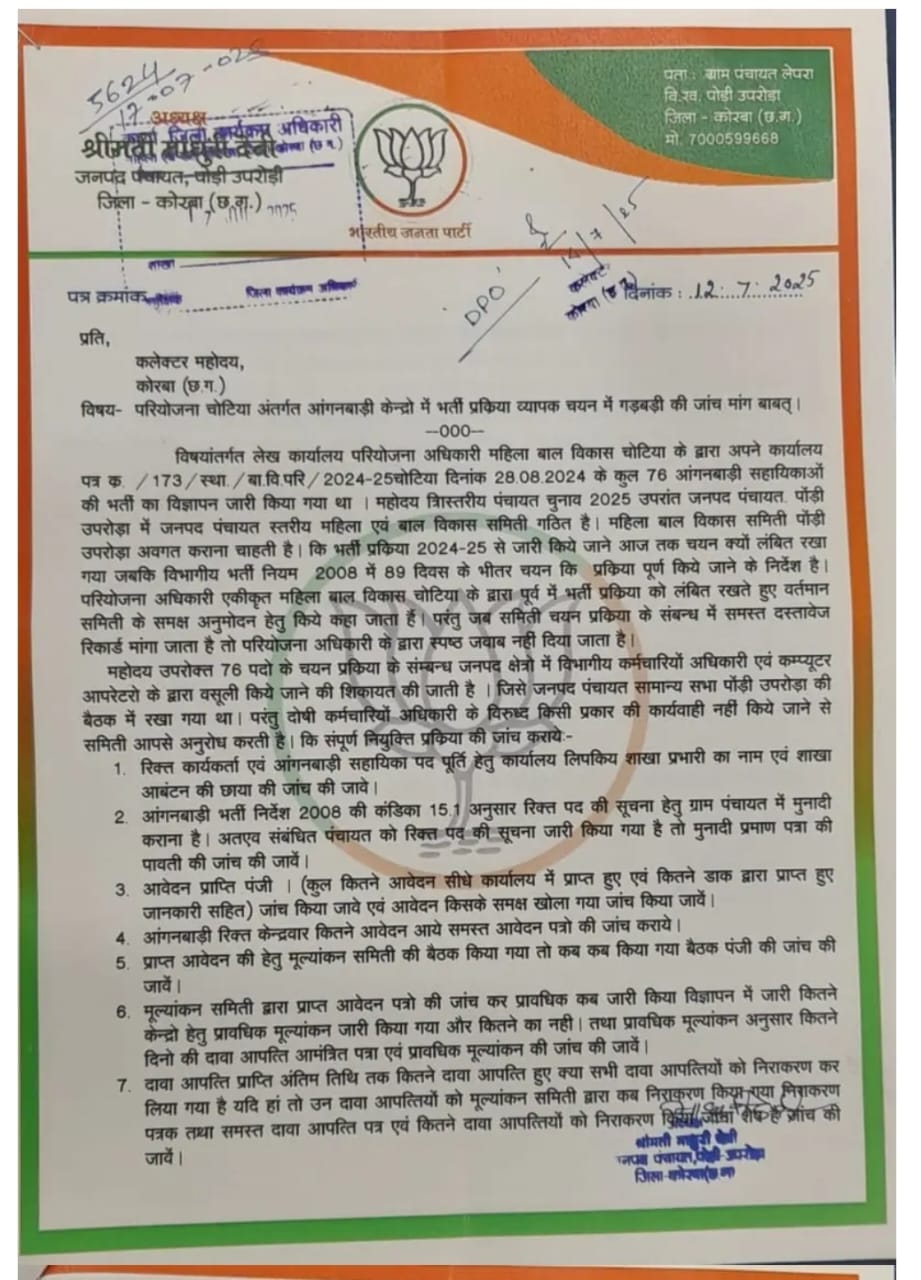 5624
17-07-025
पता : ग्राम पंचायत लेपरा
वि.ख. पोड़ी उपरोड़ा
जिला - कोरबा (छ.ग.)
मो. 7000599668
अध्यक्ष
जिला कार्यक्रम अधिकारी
श्रीमती माधुरी देवी
कोरबा (छ.ग.)
जनपद पंचायत, पोड़ी उपरोड़ी
जिला - कोरबा (छ.ग.)
भारतीय जनता पार्टी
14/7/25
DPO
कलेक्टर
कोरबा (छ.ग.)
शाखा
जिला कार्यक्रम अधिकारी
पत्र क्रमांक
दिनांक : 12.7.2025
प्रति,
कलेक्टर महोदय,
कोरबा (छ.ग.)
विषय- परियोजना चोटिया अंतर्गत आंगनबाड़ी केन्द्रो में भर्ती प्रकिया व्यापक चयन में गड़बडी की जांच मांग बाबत्।
--000--
विषयांतर्गत लेख कार्यालय परियोजना अधिकारी महिला बाल विकास चोटिया के द्वारा अपने कार्यालय
पत्र क. /173/स्था./बा.वि.परि/2024-25चोटिया दिनांक 28.08.2024 के कुल 76 आंगनबाड़ी सहायिकाओं
की भर्ती का विज्ञापन जारी किया गया था । महोदय त्रिास्तरीय पंचायत चुनाव 2025 उपरांत जनपद पंचायत. पोंड़ी
उपरोड़ा में जनपद पंचायत स्तरीय महिला एवं बाल विकास समिती गठित है। महिला बाल विकास समिती पोंड़ी
उपरोड़ा अवगत कराना चाहती है। कि भर्ती प्रकिया 2024-25 से जारी किये जाने आज तक चयन क्यों लंबित रखा
गया जबकि विभागीय भर्ती नियम 2008 में 89 दिवस के भीतर चयन कि प्रकिया पूर्ण किये जाने के निर्देश है।
परियोजना अधिकारी एकीकृत महिला बाल विकास चोटिया के द्वारा पूर्व में भर्ती प्रकिया को लंबित रखते हुए वर्तमान
समिती के समक्ष अनुमोदन हेतु किये कहा जाता हैं। परंतु जब समिती चयन प्रकिया के संबन्ध में समस्त दस्तावेज
रिकार्ड मांगा जाता है तो परियोजना अधिकारी के द्वारा स्पष्ठ जवाब नही दिया जाता है।
महोदय उपरोक्त 76 पदो के चयन प्रकिया के संम्बन्ध जनपद क्षेत्रो में विभागीय कर्मचारियों अधिकारी एवं कम्प्यूटर
आपरेटरो के द्वारा वसूली किये जाने की शिकायत की जाती है । जिसे जनपद पंचायत सामान्य सभा पोंड़ी उपरोड़ा की
बैठक में रखा गया था। परंतु दोषी कर्मचारियों अधिकारी के विरुध्द किसी प्रकार की कार्यवाही नहीं किये जाने से
समिती आपसे अनुरोध करती है। कि संपूर्ण नियुक्ति प्रकिया की जांच करायेः-
1. रिक्त कार्यकर्ता एवं आंगनबाड़ी सहायिका पद पूर्ति हेतु कार्यालय लिपकिय शाखा प्रभारी का नाम एवं शाखा
आबंटन की छाया की जांच की जावे।
2. आंगनबाड़ी भर्ती निर्देश 2008 की कंडिका 15.1 अनुसार रिक्त पद की सूचना हेतु ग्राम पंचायत में मुनादी
कराना है। अतएव संबंधित पंचायत को रिक्त पद की सूचना जारी किया गया है तो मुनादी प्रमाण पत्रा की
पावती की जांच की जावें।
3. आवेदन प्राप्ति पंजी । (कुल कितने आवेदन सीधे कार्यालय में प्राप्त हुए एवं कितने डाक द्वारा प्राप्त हुए
जानकारी सहित) जांच किया जावे एवं आवेदन किसके समक्ष खोला गया जांच किया जावें।
4. आंगनबाड़ी रिक्त केन्द्रवार कितने आवेदन आये समस्त आवेदन पत्रो की जांच कराये।
5. प्राप्त आवेदन की हेतु मूल्यांकन समिती की बैठक किया गया तो कब कब किया गया बैठक पंजी की जांच की
जावें।
6. मूल्यांकन समिती द्वारा प्राप्त आवेदन पत्रो की जांच कर प्रावधिक कब जारी किया विज्ञापन में जारी कितने
केन्द्रो हेतु प्रावधिक मूल्यांकन जारी किया गया और कितने का नही। तथा प्रावधिक मूल्यांकन अनुसार कितने
दिनो की दावा आपत्ति आमंत्रित पत्रा एवं प्रावधिक मूल्यांकन की जांच की जावें।
7. दावा आपत्ति प्राप्ति अंतिम तिथि तक कितने दावा आपत्ति हुए क्या सभी दावा आपत्तियों को निराकरण कर
लिया गया है यदि हां तो उन दावा आपत्तियों को मूल्यांकन समिती द्वारा कब निराकरण किया गया निराकरण
पत्रक तथा समस्त दावा आपत्ति पत्र एवं कितने दावा आपत्तियों को निराकरण किया जाना शेष है जांच की
जावें।
श्रीमती माधुरी देवी
जनपद पंचायत, पोड़ी-उपरोड़ा
जिला-कोरबा(छ.ग)